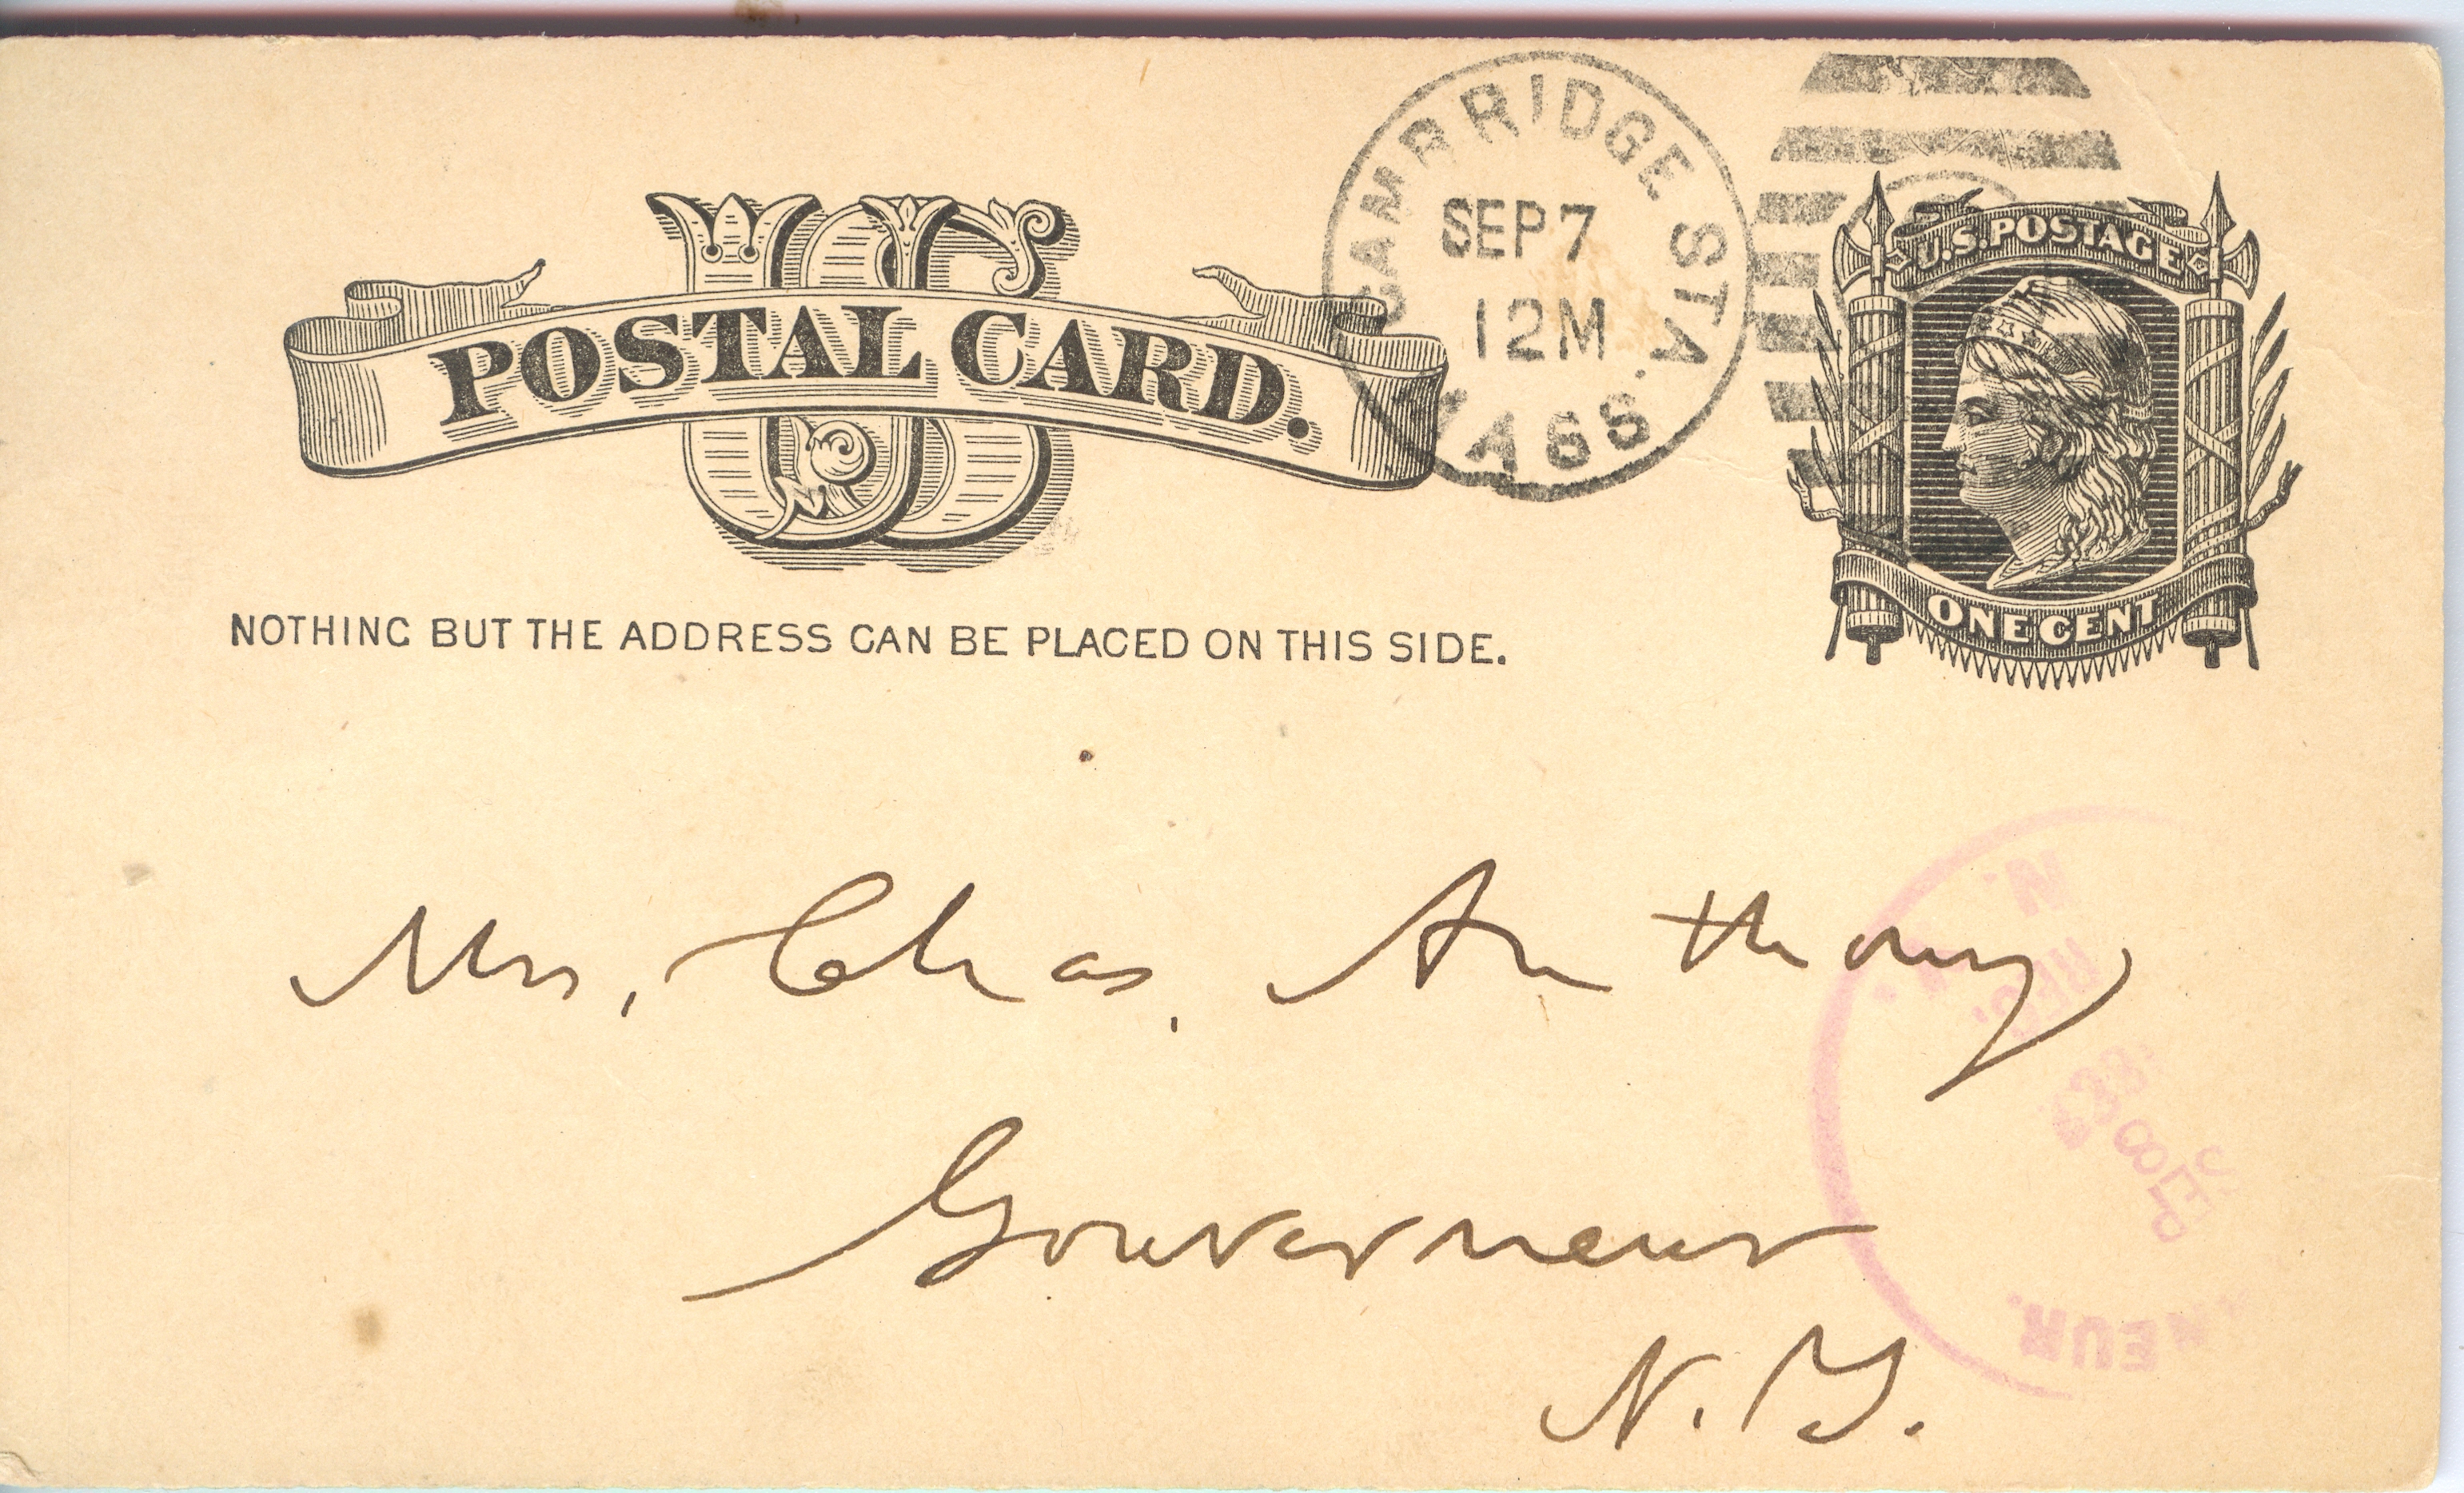 US
POSTAL CARD.
NOTHING BUT THE ADDRESS CAN BE PLACED ON THIS SIDE.
CAMBRIDGE STA.
SEP 7
12M
MASS
U.S. POSTAGE
ONE CENT
Mrs. Chas. Anthony
Gouverneur
N.Y.
REC'
SEP
8
NEUR.